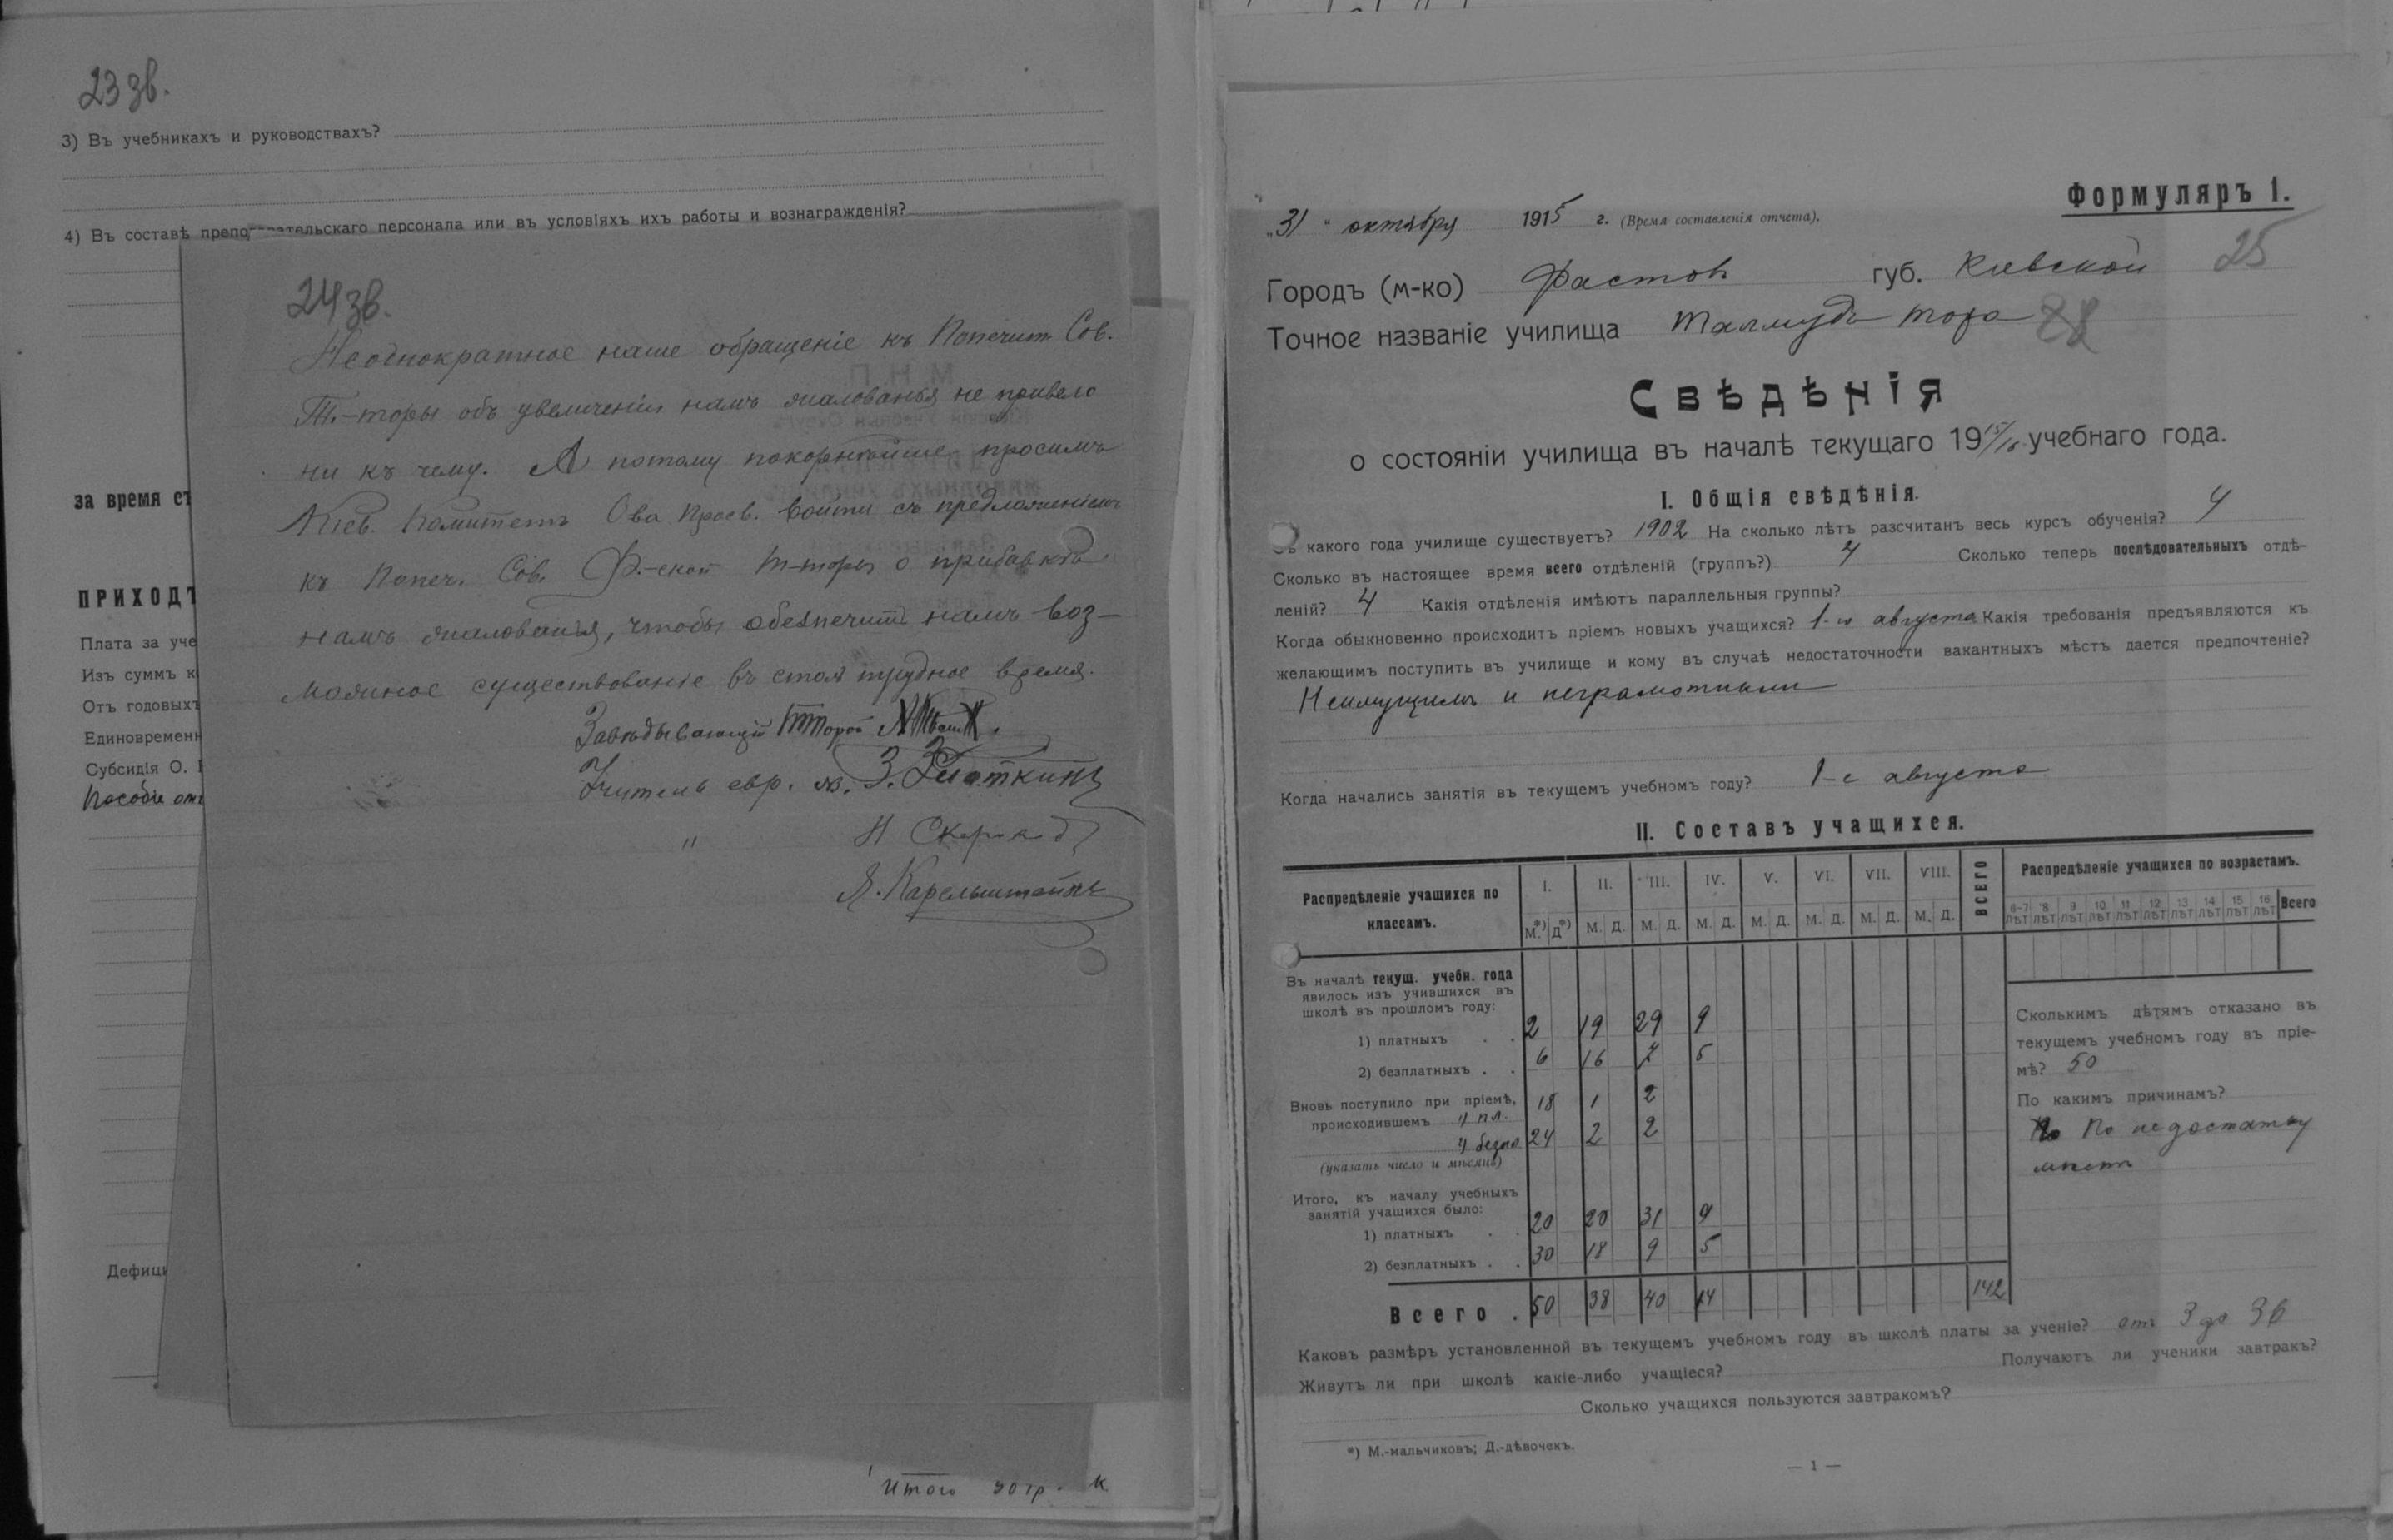 23 зв.
3) Въ учебникахъ и руководствахъ?
4) Въ составѣ препо тельскаго персонала или въ условіяхъ ихъ работы и вознагражденія?
за время ст
ПРИХОДЪ
Плата за уче
Изъ суммъ к
Отъ годовыхъ
Единовремен
Субсидія О.
Пособіе от
Дефици
24 зв.
Неоднократное наше обращеніе къ Попечит. Сов.
Т.-торы объ увеличеніи намъ жалованья не привело
ни къ чему. А потому покорнѣйше просимъ
Кіев. Комитетъ О-ва Просв. войти съ предложеніемъ
къ Попеч. Сов. Ф.-ской Т-торы о прибавкѣ
намъ жалованія, чтобы обезпечить намъ воз-
можное существованіе въ столь трудное время.
Завѣдывающій Т Торой
Учитель евр. яз. З. Златкинъ
"
Я. Карельштейнъ
Итого 30 р. к.
Формуляръ 1.
„31" октября 1915 г. (Время составленія отчета).
Городъ (м-ко) Фастовъ губ. Кіевской 25
Точное названіе училища Талмудъ Тора
Свѣдѣнія
о состояніи училища въ началѣ текущаго 1915/16 учебнаго года.
I. Общія свѣдѣнія.
Съ какого года училище существуетъ? 1902 На сколько лѣтъ разсчитанъ весь курсъ обученія? 4
Сколько въ настоящее время всего отдѣленій (группъ?) 4 Сколько теперь послѣдовательныхъ отдѣ-
леній? 4 Какія отдѣленія имѣютъ параллельныя группы?
Когда обыкновенно происходитъ пріемъ новыхъ учащихся? 1-го августа Какія требованія предъявляются къ
желающимъ поступить въ училище и кому въ случаѣ недостаточности вакантныхъ мѣстъ дается предпочтеніе?
Неимущимъ и неграмотнымъ
Когда начались занятія въ текущемъ учебномъ году? 1-е августа
II. Составъ учащихся.
Распредѣленіе учащихся по классамъ. I. II. III. IV. V. VI. VII. VIII. ВСЕГО Распредѣленіе учащихся по возрастамъ.
М.*) Д*) М. Д. М. Д. М. Д. М. Д. М. Д. М. Д. М. Д. 6-7 лѣт 8 лѣт 9 лѣт 10 лѣт 11 лѣт 12 лѣт 13 лѣт 14 лѣт 15 лѣт 16 лѣт Всего
Въ началѣ текущ. учебн. года
явилось изъ учившихся въ
школѣ въ прошломъ году:
1) платныхъ . . 2 19 29 9
2) безплатныхъ . . 6 16 7 5
Вновь поступило при пріемѣ, 18 1 2
происходившемъ 1) пл.
2) безпл. 24 2 2
(указать число и мѣсяцъ)
Итого, къ началу учебныхъ
занятій учащихся было:
1) платныхъ . . 20 20 31 9
2) безплатныхъ . . 30 18 9 5
Всего . 50 38 40 14 142
Сколькимъ дѣтямъ отказано въ
текущемъ учебномъ году въ пріе-
мѣ? 50
По какимъ причинамъ?
По недостатку
мѣстъ
Каковъ размѣръ установленной въ текущемъ учебномъ году въ школѣ платы за ученіе? отъ 3 до 36
Живутъ ли при школѣ какіе-либо учащіеся? Получаютъ ли ученики завтракъ?
Сколько учащихся пользуются завтракомъ?
*) М.-мальчиковъ; Д.-дѣвочекъ.
— 1 —